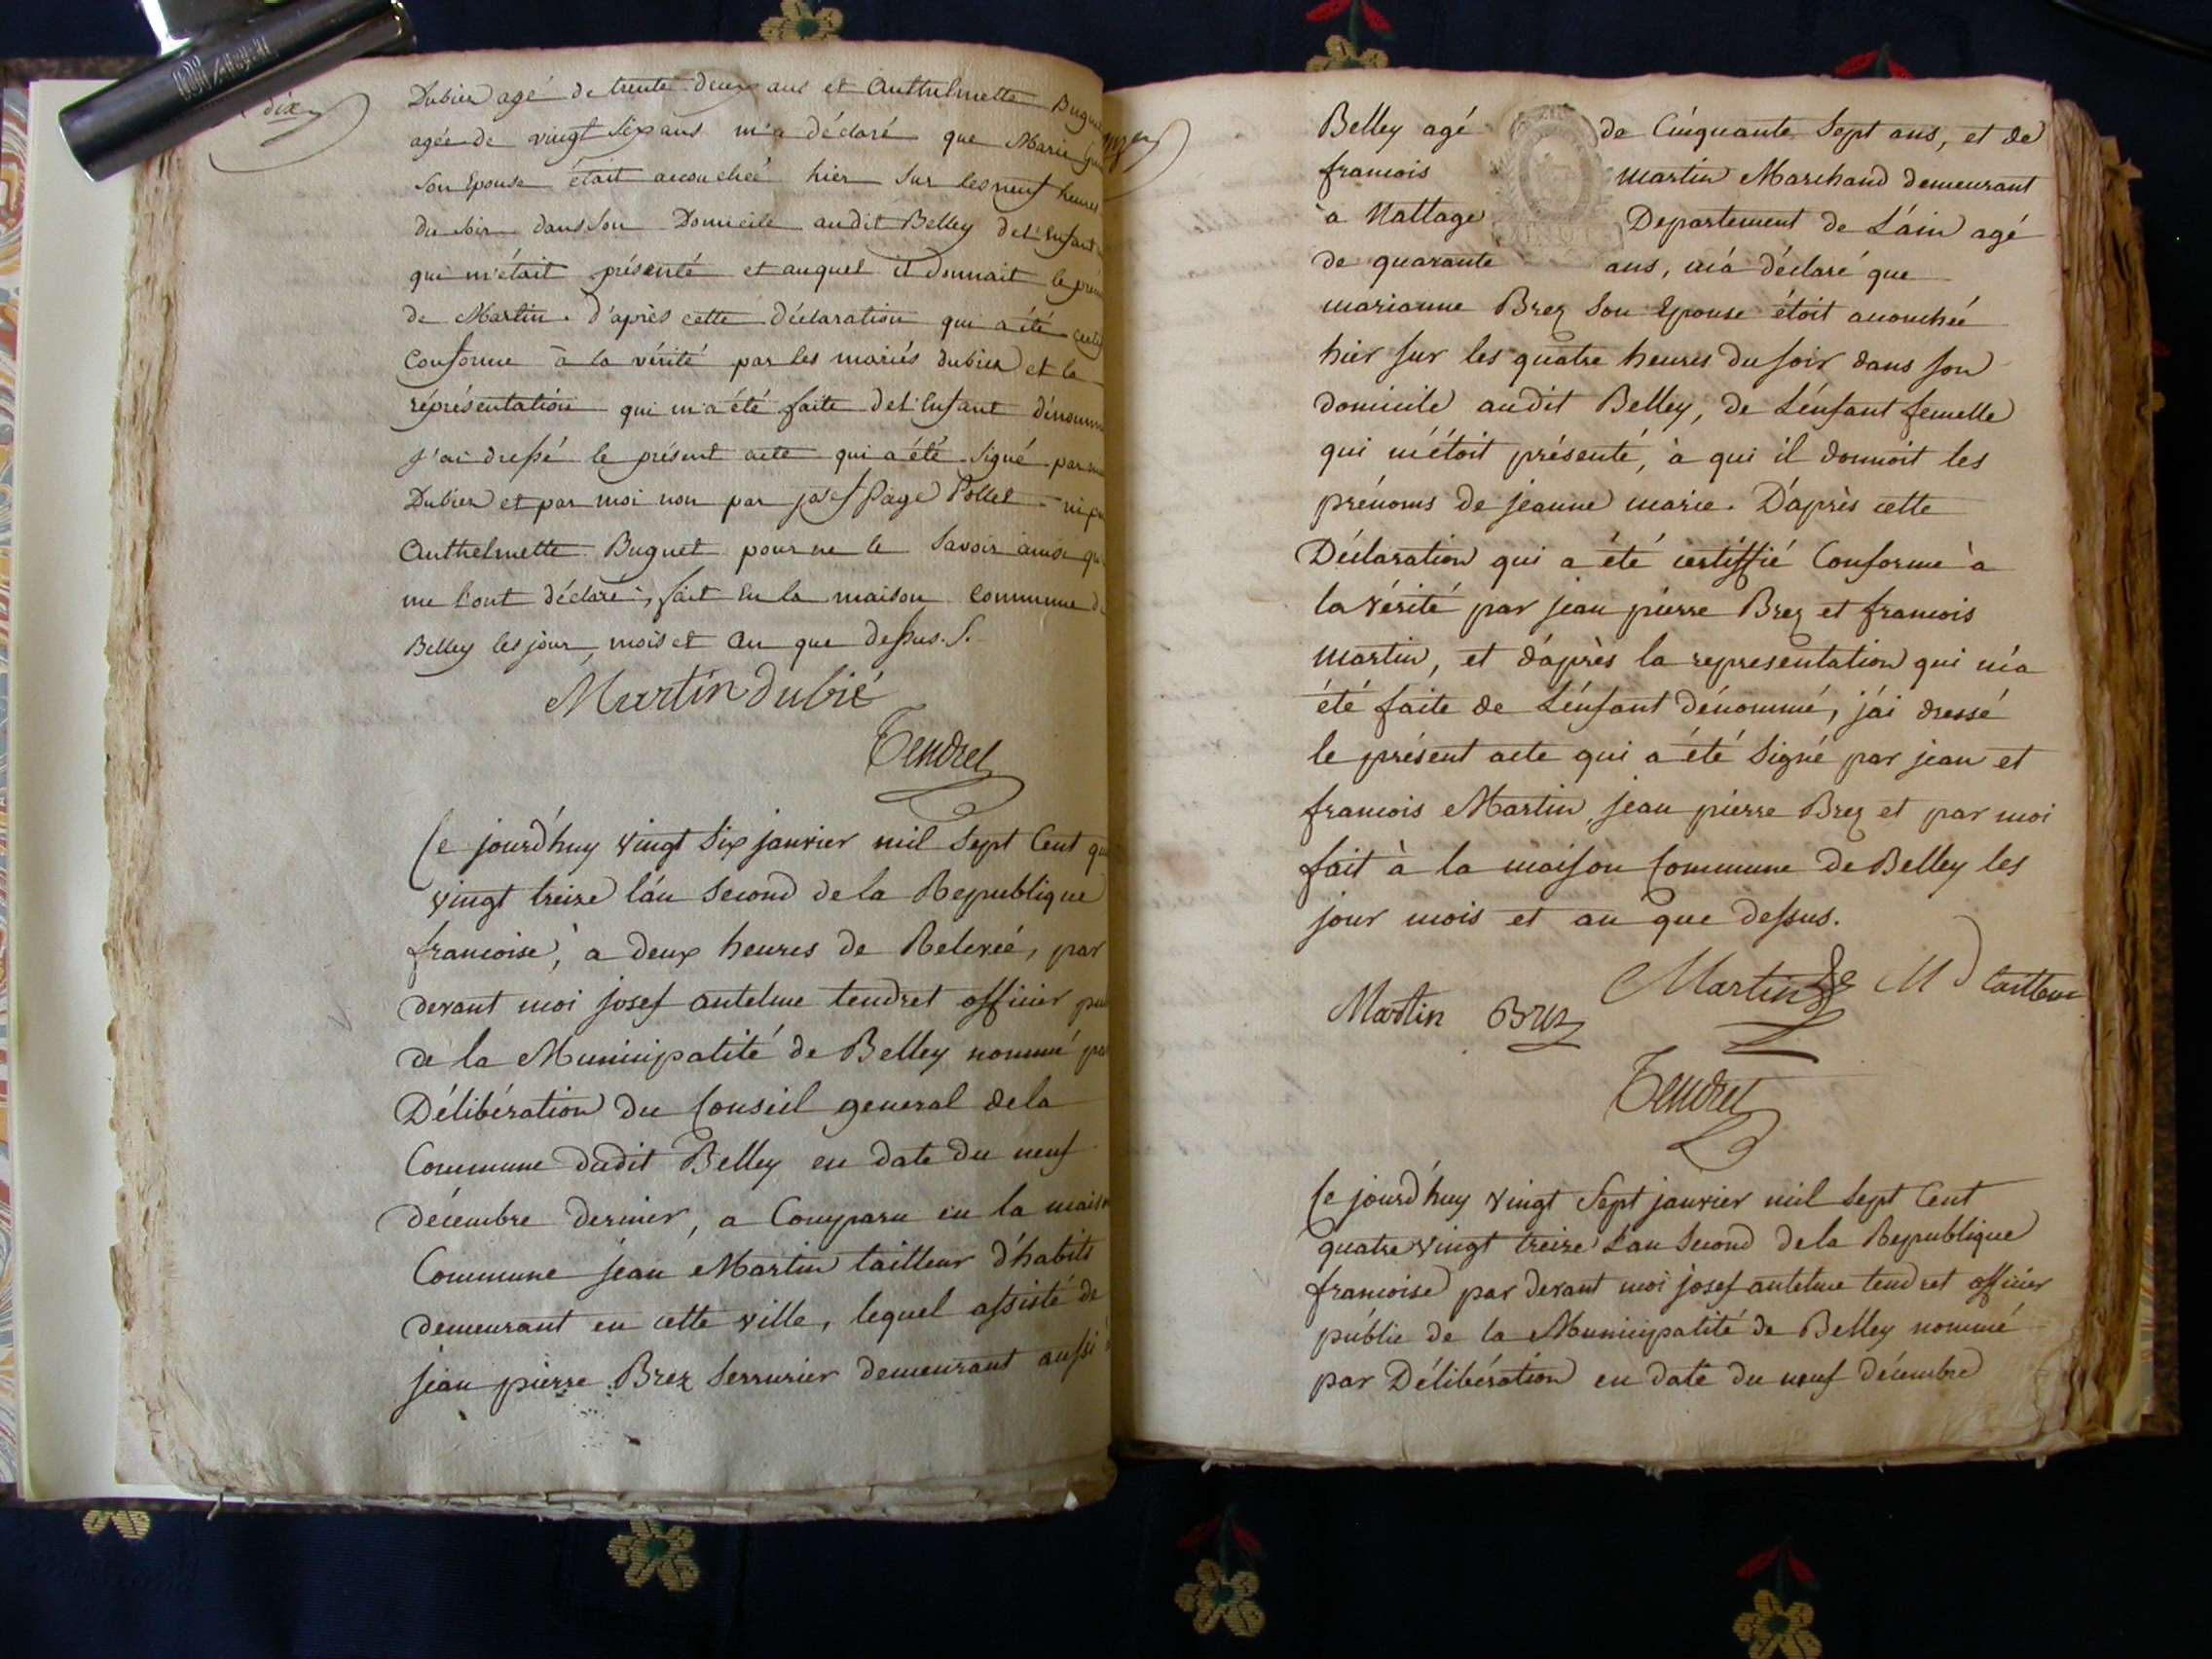 dix
Dubier agé de trente deux ans et Anthelmette
agée de vingt six ans m'a déclaré que Marie
son Epouse était accouchée hier sur les neuf heures
du soir dans son Domicile audit Belley de l'enfant
qui m'était présenté et auquel il donnait le
de Martin. d'après cette déclaration qui a été
Conforme à la vérité par les mariés dubier et la
réprésentation qui m'a été faite de l'enfant
j'ai dressé le présent acte qui a été signé
Dubier et par moi non par josef Page Pollet
Anthelmette Buguet pour ne le savoir ainsi
me l'ont déclaré, fait en la maison commune
Belley les jour, mois et an que dessus. S.
Martin dubié
Tendret
Ce jourd'huy vingt six janvier mil sept cent
vingt treize l'an second de la Republique
francoise, a deux heures de Relevée, par
devant moi josef antelme tendret officier
de la Municipalité de Belley nommé
Délibération du Conseil general de la
Commune dudit Belley en date du neuf
décembre dernier, a Comparu en la
Commune jean Martin tailleur d'habits
demeurant en cette ville, lequel assisté de
jean pierre Brez serrurier demeurant aussi
Belley agé de Cinquante Sept ans, et de
francois martin Marchand demeurant
a Nattage Departement de L'ain agé
de quarante ans, m'a déclaré que
marianne Brez son Epouse étoit accouchée
hier sur les quatre heures du soir dans son
domicile audit Belley, de L'enfant femelle
qui m'étoit présenté, à qui il donnoit les
prénoms de jeanne marie. D'après cette
Déclaration qui a été certiffié Conforme à
la vérité par jean pierre Brez et francois
martin, et d'après la representation qui m'a
été faite de L'enfant dénommé, j'ai dressé
le présent acte qui a été signé par jean et
francois Martin, jean pierre Brez et par moi
fait à la maison Commune de Belley les
jour mois et an que dessus.
Martin Brez Martin
Tendret
Ce jourd'huy vingt Sept janvier mil sept Cent
quatre vingt treize L'an second de la Republique
francoise par devant moi josef antelme tendret officier
public de la Municipalité de Belley nommé
par Délibération en date du neuf décembre